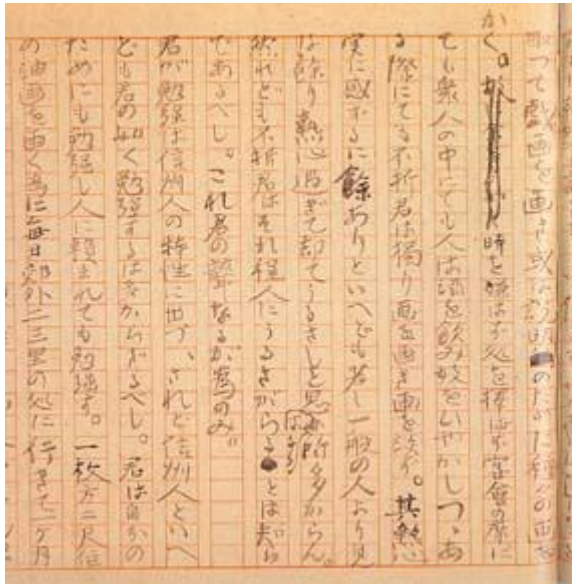 かく。時を嫌はず処を択ばず宴会の席に
ても衆人の中にても人は酒を飲み妓をひやかしつゝあ
る際にても不折君は独り画を画き画を談ず。其熱心
実に感ずるに餘ありといへども若し一般の人より見
ば餘り熱心過ぎて却てうるさしと思ふ所多からん。
然れども不折君はそれ程人にうるさがらるゝとは知ら
であるべし。これ君の聾なるが為のみ。
君が勉強は信州人の特性に出づ、されど信州人といへ
ども君の如く勉強するは多からざるべし。君は自分の
ためにも勉強し人に頼まれても勉強す。一枚方二尺位
の油画を画く為に毎日郊外二三里の処に行きて一ヶ月